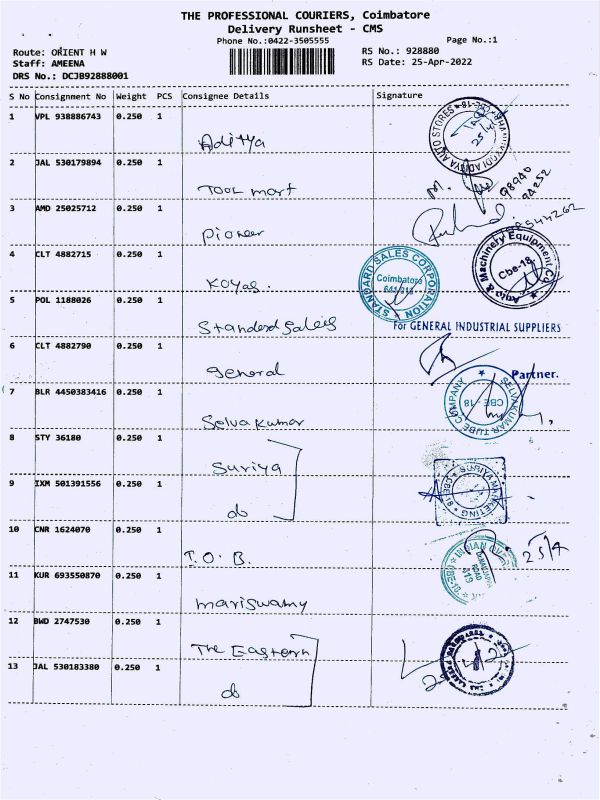 THE PROFESSIONAL COURIERS, Coimbatore
Delivery Runsheet - CMS
Phone No.:0422-3505555
Page No.:1
Route: ORIENT H W
RS No.: 928880
Staff: AMEENA
RS Date: 25-Apr-2022
DRS No.: DCJB92888001
S No Consignment No Weight PCS Consignee Details Signature
1 VPL 938886743 0.250 1
Aditya
2 JAL 530179894 0.250 1
TOOL mart
3 AMD 25025712 0.250 1
Pioneer
4 CLT 4882715 0.250 1
Koyas.
STANDARD SALES CORPORATION
Coimbatore
641 018
Auto & Machinery Equipment Co
Cbe-18.
5 POL 1188026 0.250 1
Standerd Sales
For GENERAL INDUSTRIAL SUPPLIERS
6 CLT 4882790 0.250 1
General
Partner.
7 BLR 4450383416 0.250 1
Selvakumar
SELVAKUMAR TUBE COMPANY
CBE - 18
8 STY 36180 0.250 1
Suriya
9 IXM 501391556 0.250 1
do
10 CNR 1624070 0.250 1
I.O.B.
25/4
11 KUR 693550870 0.250 1
Mariswamy
12 BWD 2747530 0.250 1
The Eastern
13 JAL 530183380 0.250 1
do